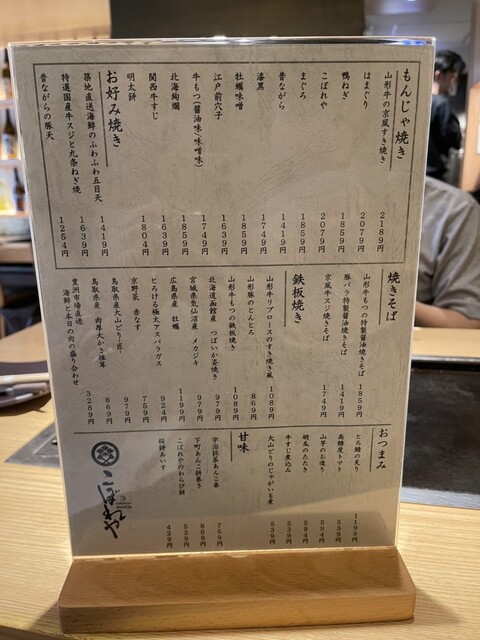 もんじゃ焼き
山形牛の京風すき焼き 2189円
はまぐり 2079円
鴨ねぎ 1859円
こぼれや 2079円
まぐろ 1859円
昔ながら 1419円
漆黒 1749円
牡蠣味噌 1859円
江戸前穴子 1639円
牛もつ(醤油味・味噌味) 1749円
北海絢爛 1859円
関西牛すじ 1639円
明太餅 1804円
お好み焼き
築地直送海鮮のふわふわ五目天 1419円
特選国産牛スジと九条ねぎ焼 1639円
昔ながらの豚天 1254円
焼きそば
山形牛もつの特製醤油焼きそば 1859円
豚バラ特製醤油焼きそば 1419円
京風牛スジ焼きそば 1749円
鉄板焼き
山形牛リブロースのすき焼き風 1089円
山形豚のとんとろ 869円
山形牛もつの鉄板焼き 1089円
北海道函館産 つぼいか姿焼き 979円
宮城県気仙沼産 メカジキ 1199円
広島県産 牡蠣 979円
とろける極太アスパラガス 924円
京野菜 赤なす 759円
鳥取県産大山どり-匠- 979円
鳥取県産 肉厚大かさ椎茸 869円
豊洲市場直送
海鮮と本日の肉の盛り合わせ 3289円
おつまみ
とろ鯖の炙り 1199円
高糖度トマト 539円
山芋のお漬り 594円
胡瓜のたたき 594円
牛すじ煮込み 539円
大山どりのじゃがいも煮 539円
甘味
宇治抹茶あんこ巻 759円
下町あんこ餅巻き 869円
こぼれやのわらび餅 539円
桜餅あいす 429円
こぼれや